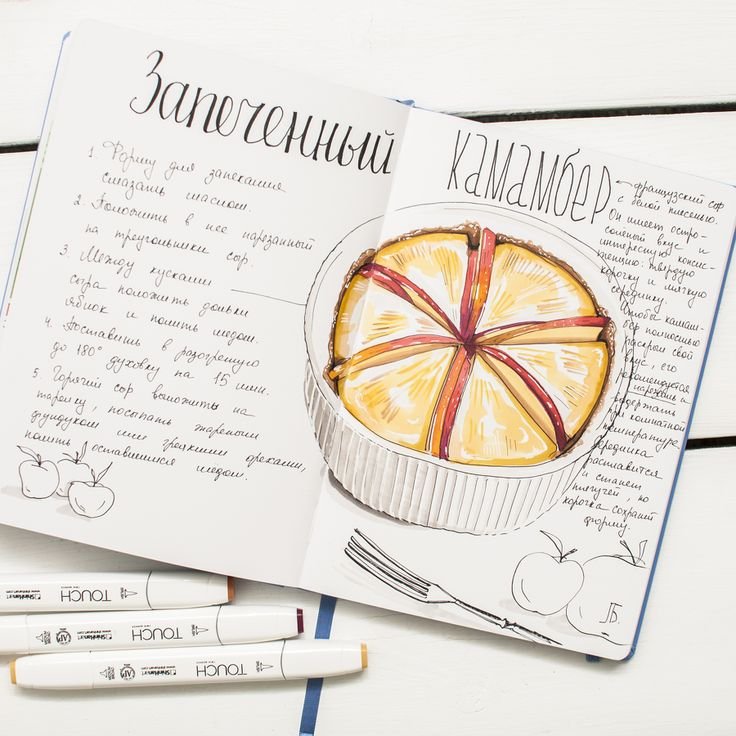 Запеченный
камамбер
1. Форму для запекания
смазать маслом.
2. Положить в нее нарезанный
на треугольники сыр.
3. Между кусками
сыра положить дольки
яблок и полить медом.
4. Поставить в разогретую
до 180° духовку на 15 мин.
5. Горячий сыр выложить на
тарелку, посыпать жареным
фундуком или грецкими орехами,
полить оставшимся медом.
французский сыр
с белой плесенью.
Он имеет остро-
солёный вкус и
интересную консис-
тенцию: твердую
корочку и мягкую
середину.
Чтобы камам-
бер полностью
раскрыл свой
вкус, его
рекомендуется
нарезать и
подержать
при комнатной
температуре.
Серединка
расплавится
и станет
тягучей, но
корочка сохранит
форму.
ЛБ.
ShinHanart
TOUCH
ShinHanart
TOUCH
TOUCH
ShinHanart